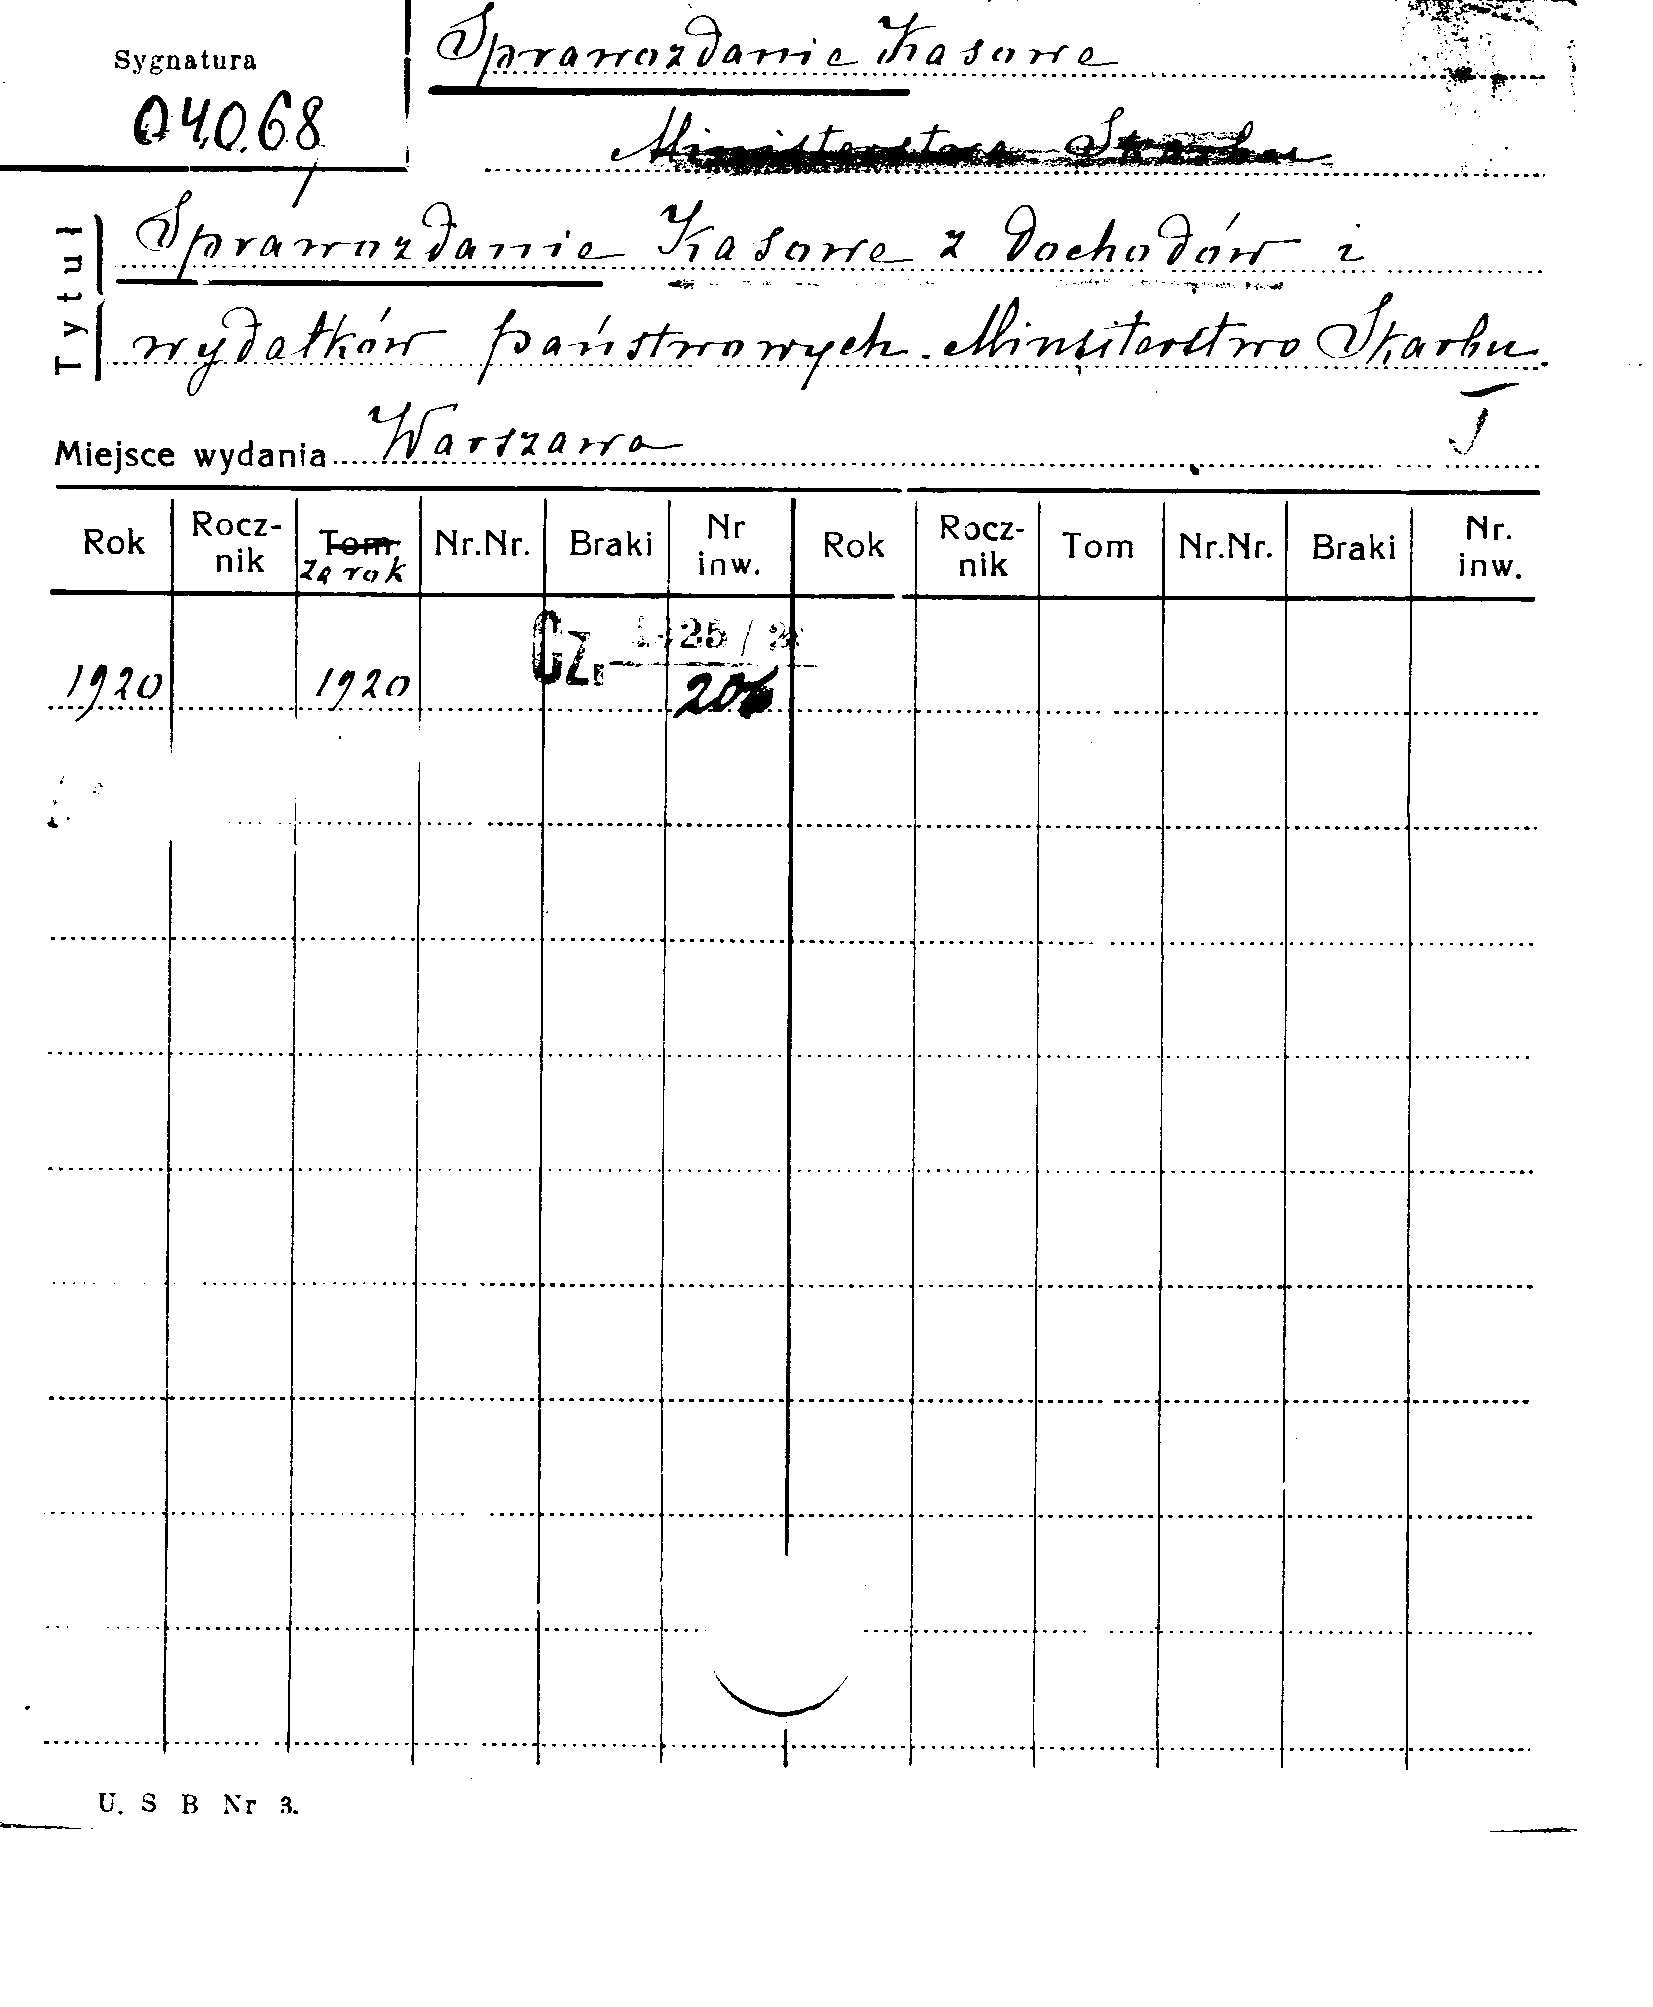 Sygnatura
04068
Sprawozdanie Kasowe
Ministerstwa Skarbu
Tytuł
Sprawozdanie Kasowe z dochodów i
wydatków państwowych. Minsiterstwo Skarbu.
I
Miejsce wydania Warszawa
Rok Rocz-nik Tom za rok Nr.Nr. Braki Nr inw. Rok Rocz-nik Tom Nr.Nr. Braki Nr. inw.
Cz.
1920 1920
U. S B Nr 3.